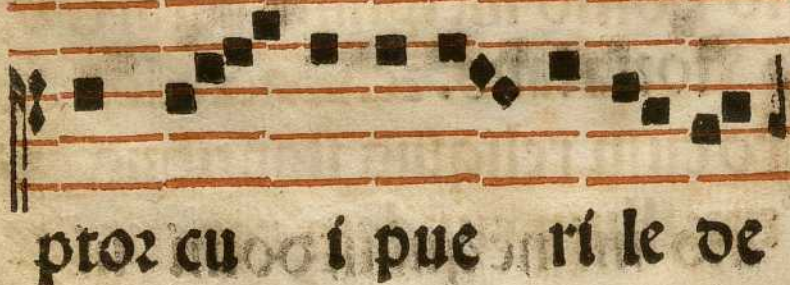 ptoꝛ cu i pue ri le de